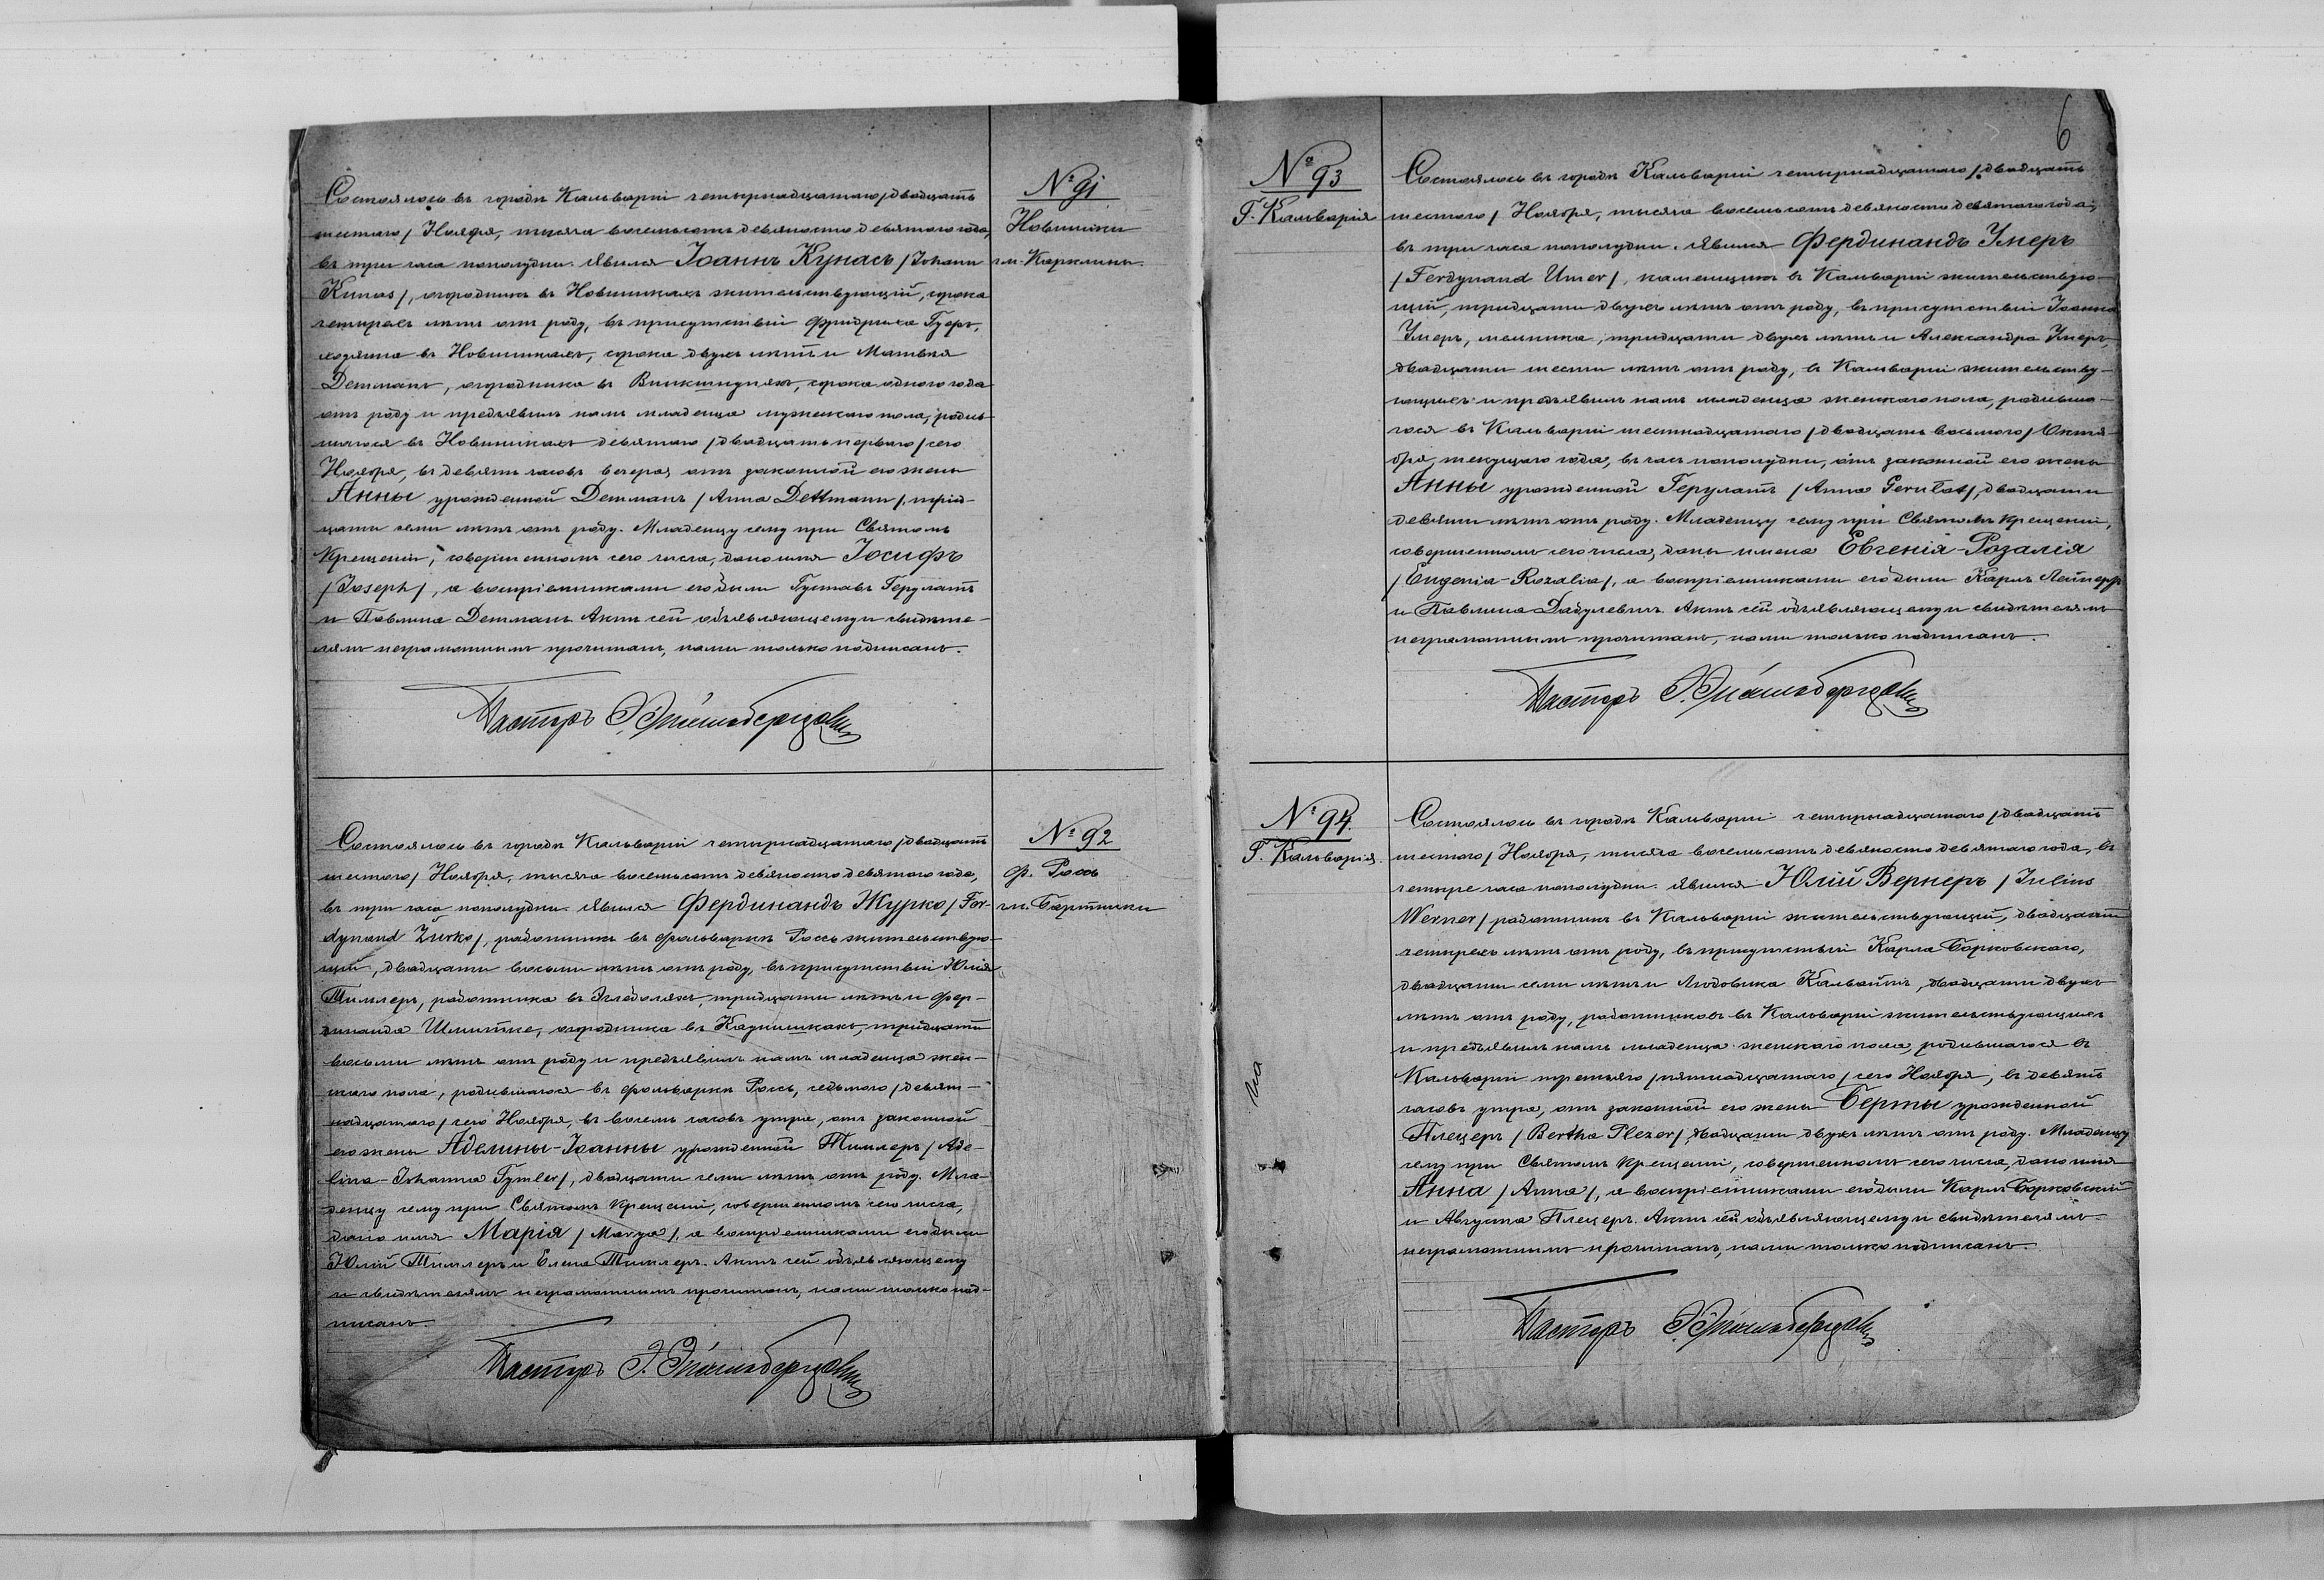 № 91
Новишки
гм. Карклины.
Состоялось въ городѣ Кальваріи четырнадцатаго /двадцать
шестого/ Ноября, тысяча восемьсотъ девяносто девятаго года,
въ три часа пополудни. Явился Іоаннъ Кунасъ /Johann
Kunas/, огородникъ въ Новишкахъ жительствующій, сорока
четырехъ лѣтъ отъ роду, въ присутствіи Фридриха
хозяина въ Новишкахъ, сорока двухъ лѣтъ и Матвея
Деттманъ, огородника въ сорока одного года
отъ роду и предъявилъ намъ младенца мужескаго пола, родив-
шагося въ Новишкахъ девятаго /двадцать перваго/ сего
Ноября, въ девять часовъ вечера, отъ законной его жены
Анны урожденной Деттманъ /Anna Dettmann/, трид-
цати семи лѣтъ отъ роду. Младенцу сему при Святомъ
Крещеніи, совершенномъ сего числа, дано имя Іосифъ
/Joseph/, а воспріемниками его были Густавъ Герулатъ
и Павлина Деттманъ. Актъ сей объявляющему и свидѣте-
лямъ неграмотнымъ прочитанъ, нами только подписанъ.
Пасторъ
№ 92
ф. Россь
гм. Бартники
Состоялось въ городѣ Кальваріи четырнадцатаго /двадцать
шестого/ Ноября, тысяча восемьсотъ девяносто девятаго года,
въ три часа пополудни. Явился Фердинандъ Журко /Fer-
dynand Żurko/, работникъ въ фольваркѣ Россь жительствую-
щій, двадцати восьми лѣтъ отъ роду, въ присутствіи Юлія
Тимлеръ, работника въ тридцати лѣтъ и Фер-
динанда Шмитке, огородника въ тридцати
восьми лѣтъ отъ роду и предъявилъ намъ младенца жен-
скаго пола, родившагося въ фольваркѣ Россь, седьмого /девят-
надцатаго/ сего Ноября, въ восемь часовъ утра, отъ законной
его жены Аделины-Іоанны урожденной Тимлеръ /Ade-
lina-Johanna Tymler/, двадцати семи лѣтъ отъ роду. Мла-
денцу сему при Святомъ Крещеніи, совершенномъ сего числа,
дано имя Марія /Marya/, а воспріемниками его были
Юлій Тимлеръ и Елена Тимлеръ. Актъ сей объявляющему
и свидѣтелямъ неграмотнымъ прочитанъ, нами только под-
писанъ.
Пасторъ
6
№ 93
Г. Кальварія
Состоялось въ городѣ Кальваріи четырнадцатаго /двадцать
шестого/ Ноября, тысяча восемьсотъ девяносто девятаго года,
въ три часа пополудни. Явился Фердинандъ Умеръ
/Ferdynand Umer/, каменщикъ въ Кальваріи жительствую-
щій, тридцати двухъ лѣтъ отъ роду, въ присутствіи Іоанна
Умеръ, мельника, тридцати двухъ лѣтъ и Александра Умеръ,
двадцати шести лѣтъ отъ роду, въ Кальваріи жительству-
ющихъ и предъявилъ намъ младенца женскаго пола, родивша-
гося въ Кальваріи шестнадцатаго /двадцать восьмого/ Октя-
бря, текущаго года, въ часъ пополудни, отъ законной его жены
Анны урожденной Герулатъ /Anna Gerulat/, двадцати
девяти лѣтъ отъ роду. Младенцу сему при Святомъ Крещеніи,
совершенномъ сего числа, даны имена Евгенія-Розалія
/Eugenia-Rozalia/, а воспріемниками его были Карлъ
и Павлина Дадулевичъ. Актъ сей объявляющему и свидѣтелямъ
неграмотнымъ прочитанъ, нами только подписанъ.
Пасторъ
№ 94.
Г. Кальварія.
Состоялось въ городѣ Кальваріи четырнадцатаго /двадцать
шестого/ Ноября, тысяча восемьсотъ девяносто девятаго года, въ
четыре часа пополудни. Явился Юлій Вернеръ /Julius
Werner/ работникъ въ Кальваріи жительствующій, двадцати
четырехъ лѣтъ отъ роду, въ присутствіи Карла Борковскаго,
двадцати семи лѣтъ и Людовика двадцати двухъ
лѣтъ отъ роду, работниковъ въ Кальваріи жительствующихъ
и предъявилъ намъ младенца женскаго пола, родившагося въ
Кальваріи третьяго /пятнадцатаго/ сего Ноября, въ девять
часовъ утра, отъ законной его жены Берты урожденной
Плецеръ /Bertha Plezer/ двадцати двухъ лѣтъ отъ роду. Младенцу
сему при Святомъ Крещеніи, совершенномъ сего числа, дано имя
Анна /Anna/, а воспріемниками его были Карлъ Борковскій
и Августа Плецеръ. Актъ сей объявляющему и свидѣтелямъ
неграмотнымъ прочитанъ, нами только подписанъ.
Пасторъ